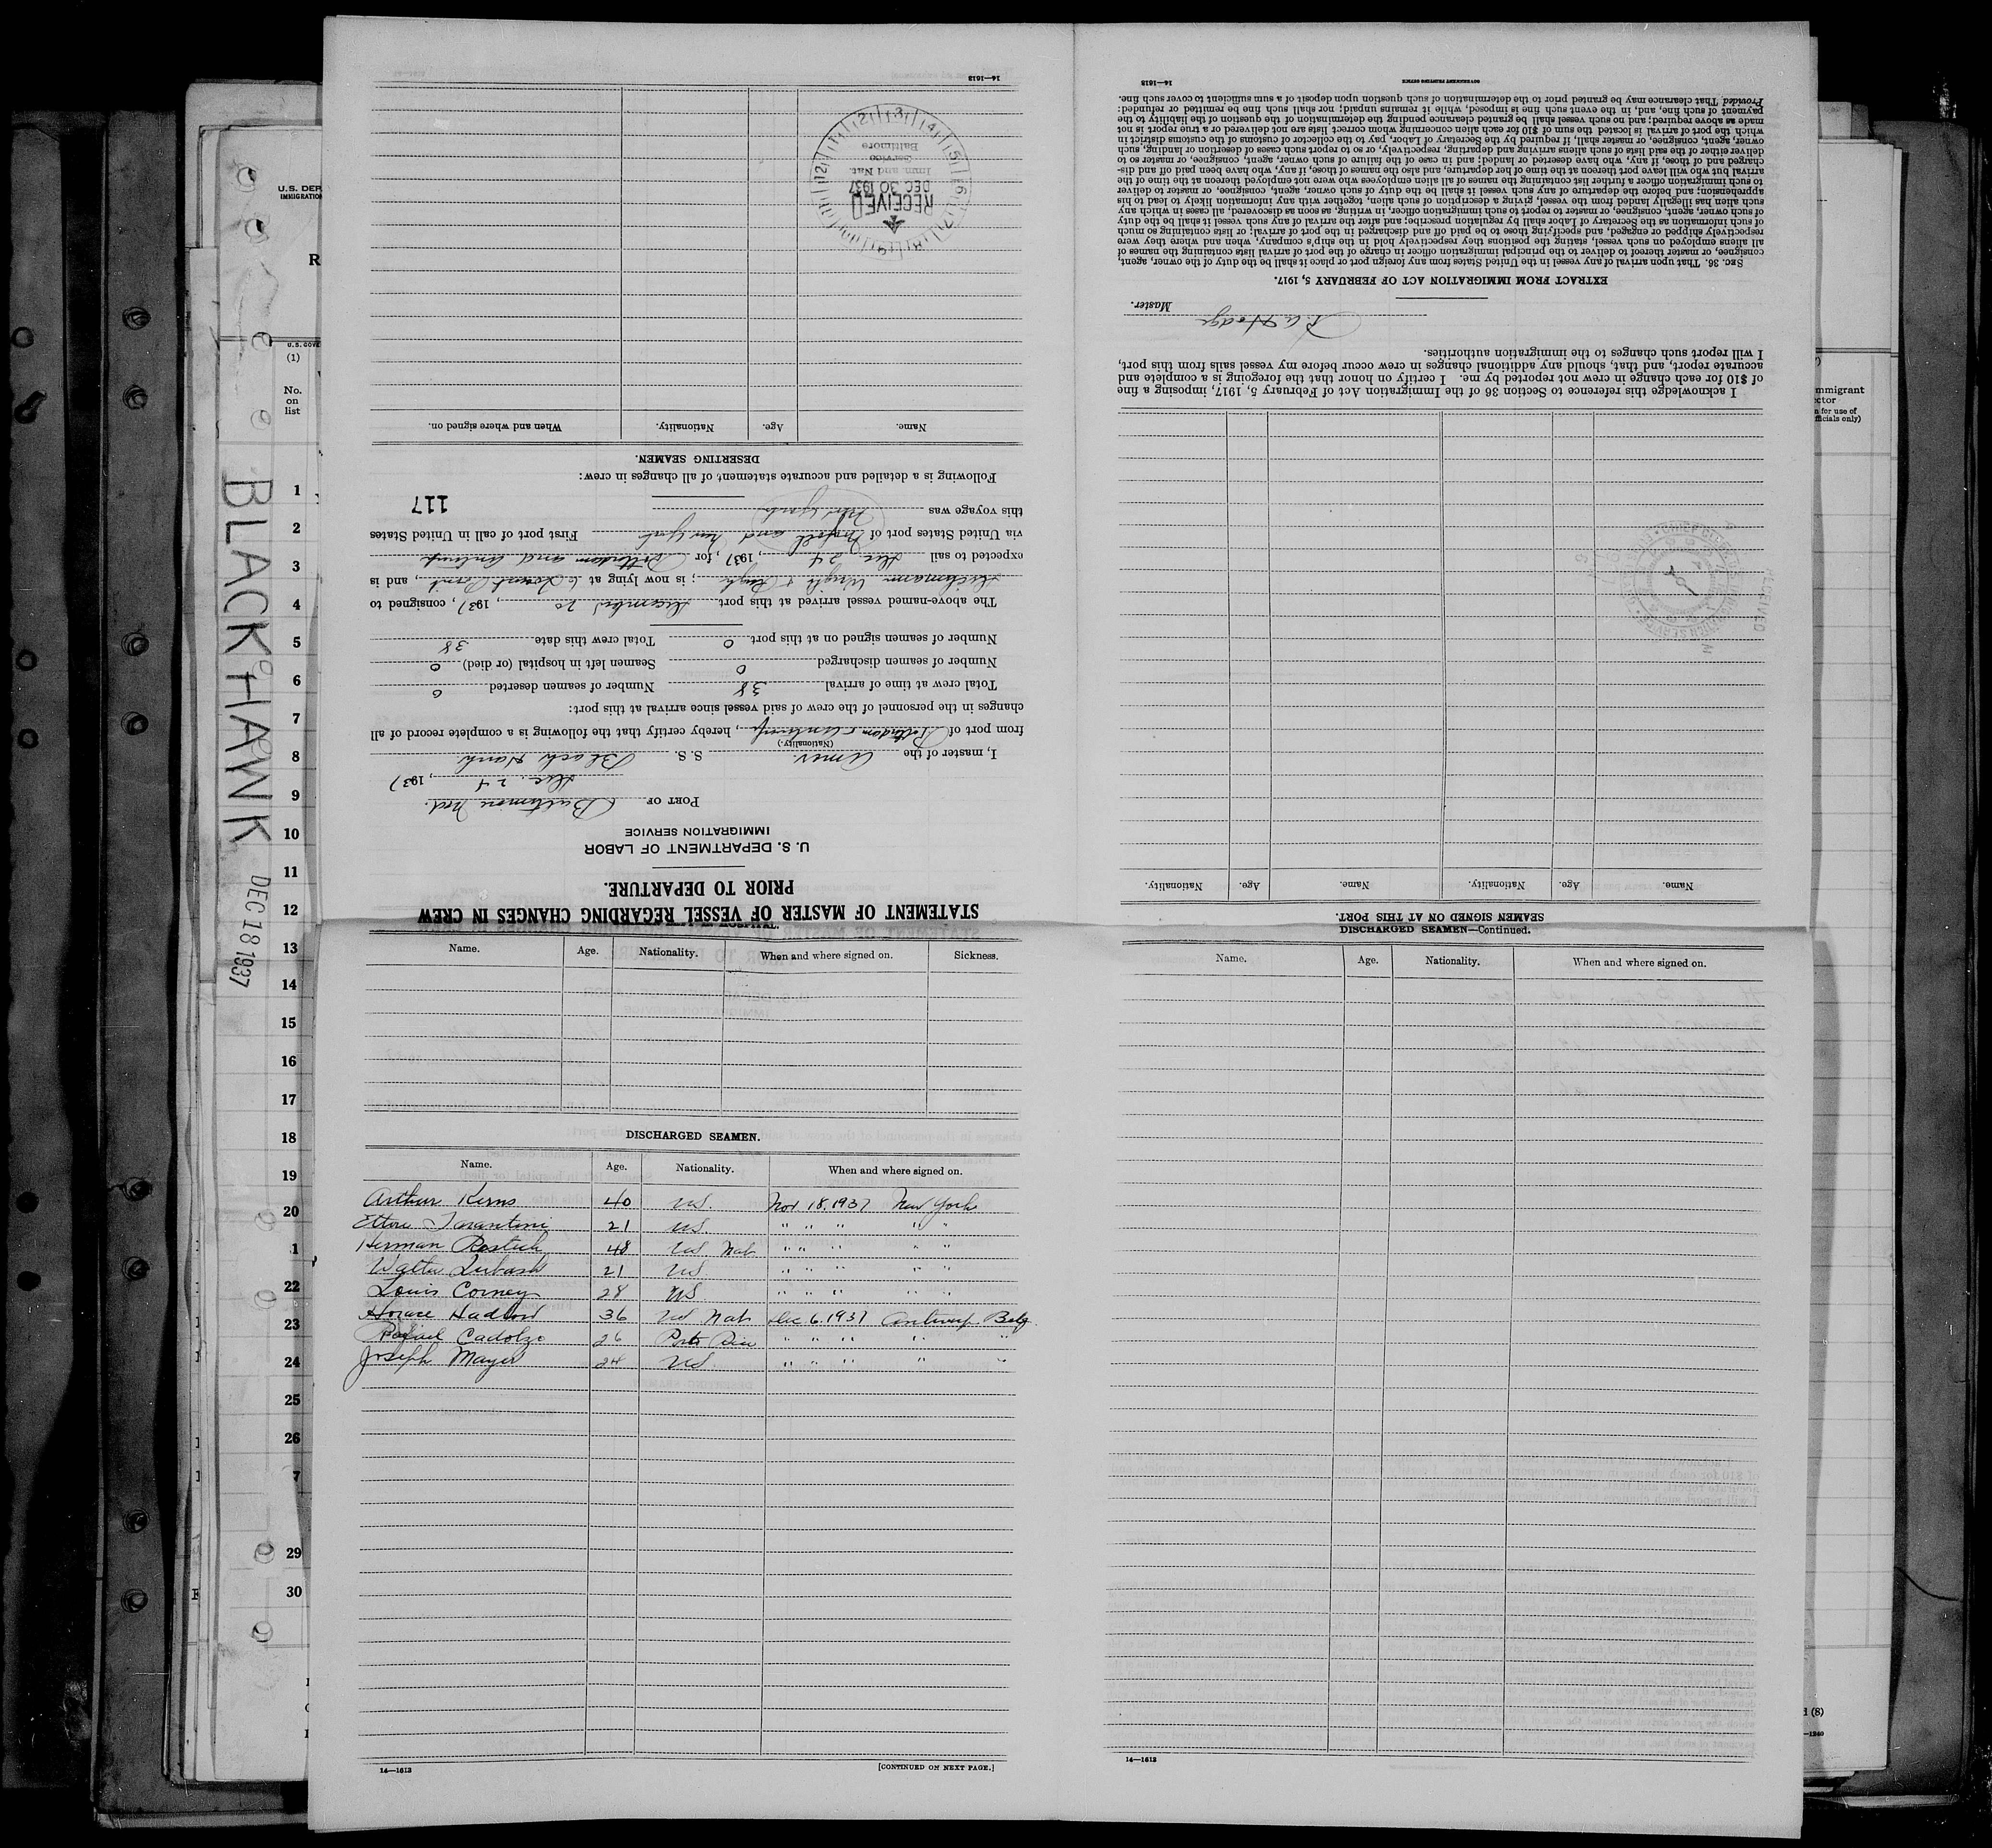 U.S. DEP
IMMIGRATION
R
U.S. GOVE
(1)
No.
on
list
BLACK HAWK DEC 18 1937
1
2
3
4
5
6
7
8
9
10
11
12
13
14
15
16
17
18
19
20
1
22
23
24
25
26
7
29
30
STATEMENT OF MASTER OF VESSEL REGARDING CHANGES IN CREW
PRIOR TO DEPARTURE.
U. S. DEPARTMENT OF LABOR
IMMIGRATION SERVICE
PORT OF Baltimore Md.
Dec. 24, 1937
I, master of the Amer. S. S. Black Hawk
(Nationality.)
from port of Rotterdam & Antwerp, hereby certify that the following is a complete record of all
changes in the personnel of the crew of said vessel since arrival at this port:
Total crew at time of arrival 38 Number of seamen deserted 0
Number of seamen discharged 0 Seamen left in hospital (or died) 0
Number of seamen signed on at this port 0 Total crew this date 38
The above-named vessel arrived at this port December 20, 1937, consigned to
; is now lying at Point, and is
expected to sail Dec 24, 1937, for Rotterdam and Antwerp
via United States port of and New York First port of call in United States
this voyage was New York
117
Following is a detailed and accurate statement of all changes in crew:
DESERTING SEAMEN.
Name. Age. Nationality. When and where signed on.
RECEIVED
DEC 30 1937
Imm and Nat.
Service
Baltimore
14—1613
SEAMEN SIGNED ON AT THIS PORT.
Name. Age. Nationality. Name. Age. Nationality.
I acknowledge this reference to Section 36 of the Immigration Act of February 5, 1917, imposing a fine
of $10 for each change in crew not reported by me. I certify on honor that the foregoing is a complete and
accurate report, and that, should any additional changes in crew occur before my vessel sails from this port,
I will report such changes to the immigration authorities.
Hodge
Master.
EXTRACT FROM IMMIGRATION ACT OF FEBRUARY 5, 1917.
SEC. 36. That upon arrival of any vessel in the United States from any foreign port or place it shall be the duty of the owner, agent,
consignee, or master thereof to deliver to the principal immigration officer in charge of the port of arrival lists containing the names of
all aliens employed on such vessel, stating the positions they respectively hold in the ship's company, when and where they were
respectively shipped or engaged, and specifying those to be paid off and discharged in the port of arrival; or lists containing so much
of such information as the Secretary of Labor shall by regulation prescribe; and after the arrival of any such vessel it shall be the duty
of such owner, agent, consignee, or master to report to such immigration officer, in writing, as soon as discovered, all cases in which any
such alien has illegally landed from the vessel, giving a description of such alien, together with any information likely to lead to his
apprehension; and before the departure of any such vessel it shall be the duty of such owner, agent, consignee, or master to deliver
to such immigration officer a further list containing the names of all alien employees who were not employed thereon at the time of the
arrival but who will leave port thereon at the time of her departure, and also the names of those, if any, who have been paid off and dis-
charged and of those, if any, who have deserted or landed; and in case of the failure of such owner, agent, consignee, or master so to
deliver either of the said lists of such aliens arriving and departing, respectively, or so to report such cases of desertion or landing, such
owner, agent, consignee, or master shall, if required by the Secretary of Labor, pay to the collector of customs of the customs district in
which the port of arrival is located the sum of $10 for each alien concerning whom correct lists are not delivered or a true report is not
made as above required; and no such vessel shall be granted clearance pending the determination of the question of the liability to the
payment of such fine, and, in the event such fine is imposed, while it remains unpaid; nor shall such fine be remitted or refunded:
Provided, That clearance may be granted prior to the determination of such question upon deposit of a sum sufficient to cover such fine.
14—1613 GOVERNMENT PRINTING OFFICE
Name. Age. Nationality. When and where signed on. Sickness.
DISCHARGED SEAMEN.
Name. Age. Nationality. When and where signed on.
Arthur Kerns 40 US. Nov 18. 1937 New York
Ettore Tarantini 21 US " " " " "
Herman 48 US Nat " " " " "
Walter 21 US " " " " "
Louis Corney 28 US " " " " "
Horace Hadlow 36 US Nat Dec 6. 1937 Antwerp Belg.
Rafael 26 Porto Rico " " " " "
Joseph Mayer 24 US " " " " "
14—1613 [CONTINUED ON NEXT PAGE.]
DISCHARGED SEAMEN—Continued.
Name. Age. Nationality. When and where signed on.
14—1613
mmigrant
ctor
n for use of
fficials only)
d (8)
—1240